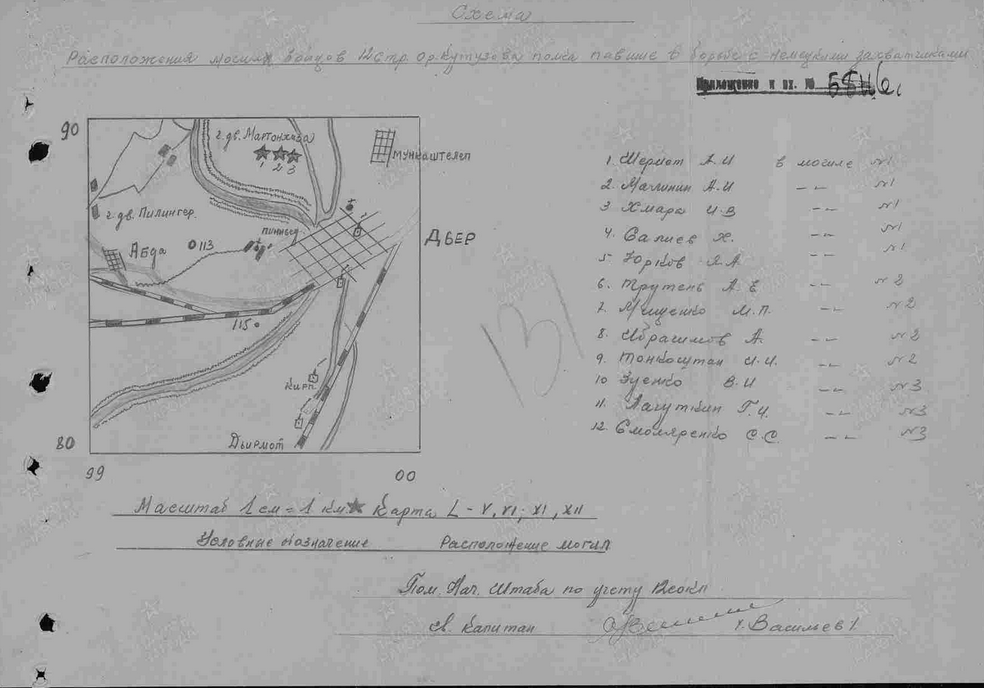 Схема
Расположения могил бойцов 12 стр. Орд. Кутузова полка павшие в борьбе с немецкими захватчиками
Приложение к вх. №
90
г. дв. Мартонхаза
1 2 3
Мункаштелеп
г. дв. Пилингер.
пиннъед
ДЬЕР
Абда
113
115
Кирп.
Дьирмот
80
99
00
1. Шермот А.И в могиле №1
2. Малинин А.И -- №1
3 Хмара И.В -- №1
4. Салиев Х. -- №1
5 Юрков Я.А. -- №1
6. Трутень А.Е -- №2
7. Мищенко М.П. -- №2
8. Ибрагимов А. -- №2
9. Тонкоштан И.И. -- №2
10 Зуенко В.И -- №3
11. Лагуткин Г.И. -- №3
12. Смоляренко С.С. -- №3
131
Масштаб 1 см = 1 км. Карта L - V, VI; XI, XII
Условные обозначение Расположение могил
Пом. Нач. Штаба по учету
Гв. капитан /Васильев/